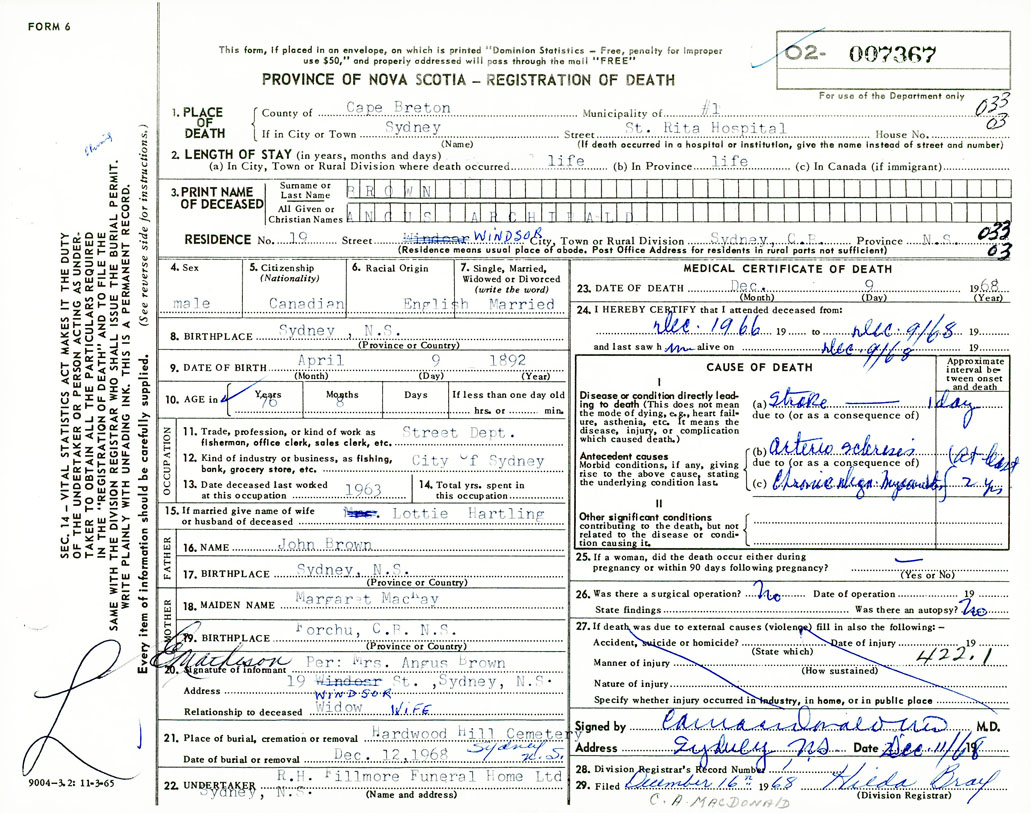 FORM 6
This form, if placed in an envelope, on which is printed "Dominion Statistics – Free, penalty for improper
use $50," and properly addressed will pass through the mail "FREE"
PROVINCE OF NOVA SCOTIA – REGISTRATION OF DEATH
02- 007367
For use of the Department only
033
03
1. PLACE OF DEATH
County of Cape Breton Municipality of #1
If in City or Town Sydney Street St. Rita Hospital House No.
(Name) (If death occurred in a hospital or institution, give the name instead of street and number)
2. LENGTH OF STAY (in years, months and days)
(a) In City, Town or Rural Division where death occurred life (b) In Province life (c) In Canada (if immigrant)
3. PRINT NAME OF DECEASED
Surname or Last Name BROWN
All Given or Christian Names ANGUS ARCHIBALD
RESIDENCE No. 19 Street Windsor WINDSOR City, Town or Rural Division Sydney, C.B. Province N.S.
(Residence means usual place of abode. Post Office Address for residents in rural parts not sufficient)
033
03
4. Sex
male
5. Citizenship
(Nationality)
Canadian
6. Racial Origin
English
7. Single, Married,
Widowed or Divorced
(write the word)
Married
8. BIRTHPLACE Sydney , N.S.
(Province or Country)
9. DATE OF BIRTH April 9 1892
(Month) (Day) (Year)
10. AGE in Years Months Days If less than one day old
76 8 hrs. or min.
OCCUPATION
11. Trade, profession, or kind of work as
fisherman, office clerk, sales clerk, etc. Street Dept.
12. Kind of industry or business, as fishing,
bank, grocery store, etc. City of Sydney
13. Date deceased last worked
at this occupation 1963
14. Total yrs. spent in
this occupation
15. If married give name of wife
or husband of deceased Lottie Hartling
FATHER
16. NAME John Brown
17. BIRTHPLACE Sydney, N.S.
(Province or Country)
MOTHER
18. MAIDEN NAME Margaret MacKay
19. BIRTHPLACE Forchu, C.B. N.S.
(Province or Country)
E. Matheson
20. Signature of informant Per: Mrs. Angus Brown
Address 19 Windsor St. ,Sydney, N.S.
WINDSOR
Relationship to deceased Widow WIFE
21. Place of burial, cremation or removal Hardwood Hill Cemetery
Date of burial or removal Dec. 12,1968 Sydney N.S.
22. UNDERTAKER R.H. Fillmore Funeral Home Ltd
Sydney, N.S. (Name and address)
MEDICAL CERTIFICATE OF DEATH
23. DATE OF DEATH Dec. 9 1968
(Month) (Day) (Year)
24. I HEREBY CERTIFY that I attended deceased from:
Dec. 1966 19 to Dec. 9/68 19
and last saw him alive on Dec. 9/68 19
CAUSE OF DEATH
Approximate
interval be-
tween onset
and death
I
Disease or condition directly lead-
ing to death (This does not mean
the mode of dying, e.g., heart fail-
ure, asthenia, etc. It means the
disease, injury, or complication
which caused death.)
(a) Stroke 1 day
due to (or as a consequence of)
Antecedent causes
Morbid conditions, if any, giving
rise to the above cause, stating
the underlying condition last.
(b) Arterio sclerosis (At least
due to (or as a consequence of)
(c) Chronic degn. Myocarditis 2 yrs
II
Other significant conditions
contributing to the death, but not
related to the disease or condi-
tion causing it.
25. If a woman, did the death occur either during
pregnancy or within 90 days following pregnancy?
(Yes or No)
26. Was there a surgical operation? No Date of operation 19
State findings Was there an autopsy? No
27. If death was due to external causes (violence) fill in also the following: –
Accident, suicide or homicide? Date of injury 19
(State which) 422.1
Manner of injury
(How sustained)
Nature of injury
Specify whether injury occurred in industry, in home, or in public place
Signed by M.D.
Address Sydney, NS Date Dec. 11/68 19
28. Division Registrar's Record Number
29. Filed December 16th 1968 Hilda Bray
(Division Registrar)
C. A. MACDONALD
SEC. 14 – VITAL STATISTICS ACT MAKES IT THE DUTY
OF THE UNDERTAKER OR PERSON ACTING AS UNDER-
TAKER TO OBTAIN ALL THE PARTICULARS REQUIRED
IN THE "REGISTRATION OF DEATH" AND TO FILE THE
SAME WITH THE DIVISION REGISTRAR WHO SHALL ISSUE THE BURIAL PERMIT.
WRITE PLAINLY WITH UNFADING INK. THIS IS A PERMANENT RECORD.
Every item of information should be carefully supplied. (See reverse side for instructions.)
9004-3.2: 11-3-65